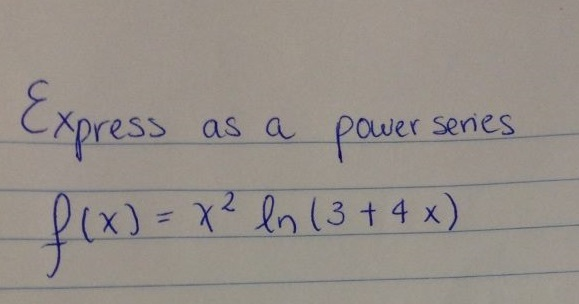 Express as a power series
f(x) = x² ln(3 + 4x)